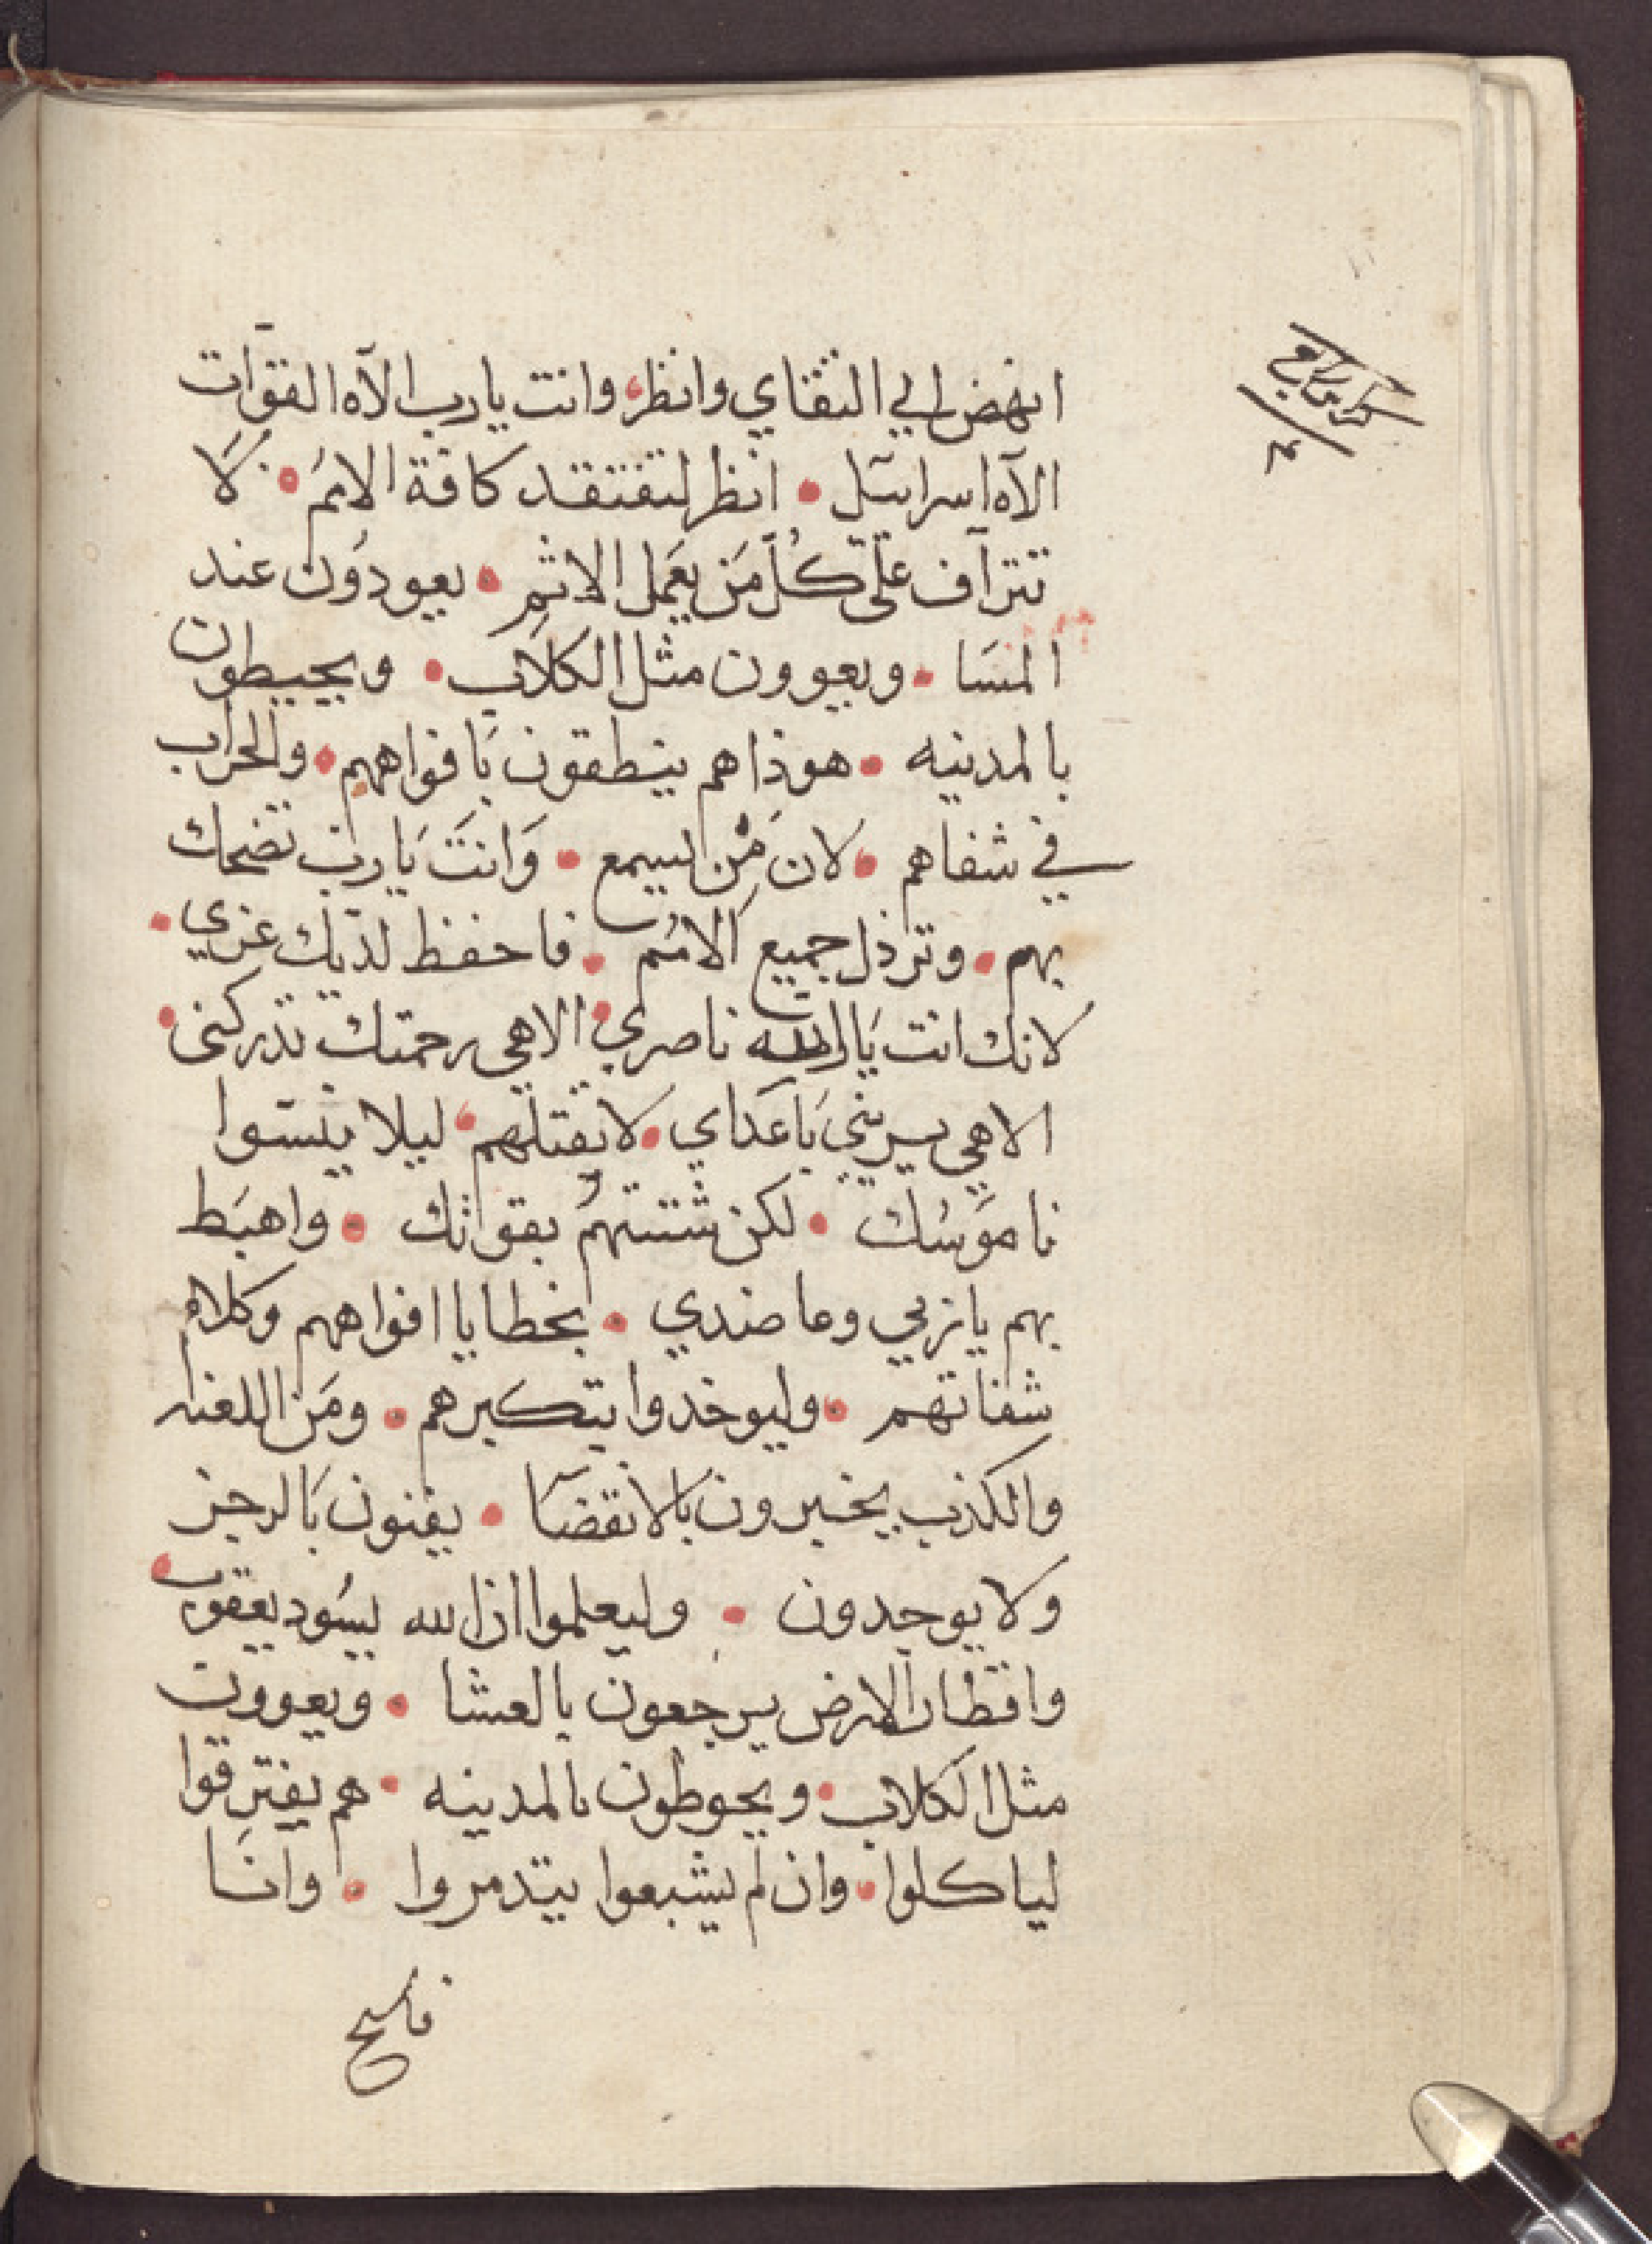 كراس رابع
٤
انهض الي التقاي وانظر، وانت يارب الآه القوّات
الآه اسراييل • انظر لتفتقد كافة الامُم • لا
تتراَف علَى كُل مَن يعَمل الاثم • يعودوُن عند
المسَا • ويعوون مثل الكلاب • ويحيطون
بالمدينه • هوذا هم ينطقون باَفواههم • والحراب
في شفاهم • لان مَن يسمع • وَانتَ ياَرب تضحك
بهم • وترذل جميع الامُم • فاحفظ لديك عزي •
لانك انت ياَالله ناصري • الاهي رحمتك تدركني •
الاهي يريني باَعَداي • لا تقتلهم • ليلا ينسَوا
نامَوسُك • لكن شتتهمُ بقواتك • واهبَط
بهم يا ربي وعاضدي • بخطايا افواههم وكلام
شفاتهم • وليوخدوا بتكبرهم • ومَن اللعنه
والكذب يخبرون باَلانقضَآ • يفنون باَلرجز
ولا يوجدون • وليعلموا ان الله يسُود يعقوب •
واقطار الارض يرجعون بالعشا • ويعوون
مثل الكلاب • ويحوطون بالمدينه • هم يفترقوا
لياكلوا • وان لم يشبعوا يتدمروا • وانا
فاسبح